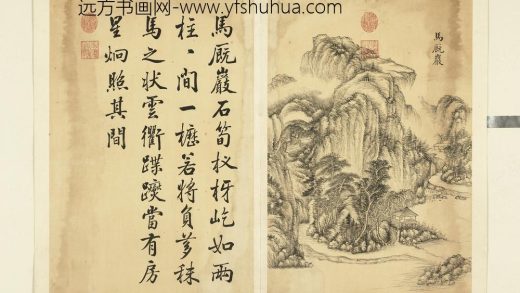 远方书画网-www.yfshuhua.com
馬厩巖
馬厩巖石筍杈枒屹如兩
柱、間一櫪若將負芻秣
馬之狀雲衢蹀躞當有房
星炯照其間